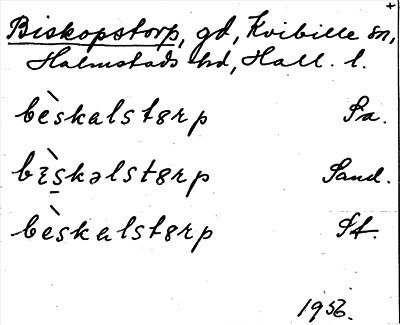 Biskopstorp, gd, Kvibille sn,
Halmstads hd, Hall. l.
bèskalstørp Pa.
bɛ̀skəlstørp Sand.
bèskalstørp St.
1956.